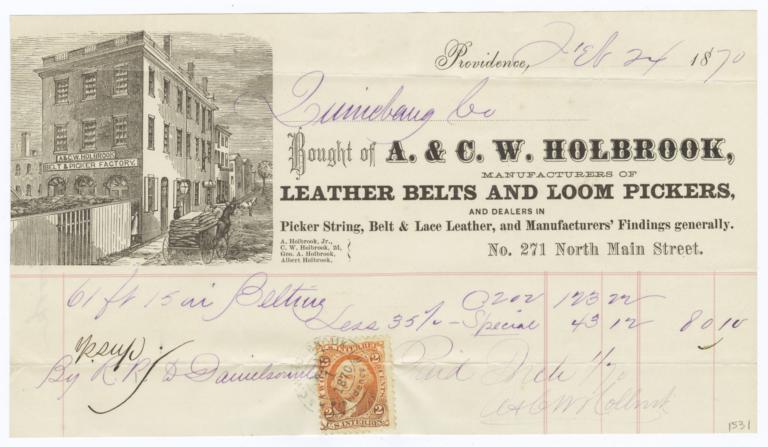 Providence, Feb 24 1870
Quinebaug Co
Bought of A. & C. W. HOLBROOK,
MANUFACTURERS OF
LEATHER BELTS AND LOOM PICKERS,
AND DEALERS IN
Picker String, Belt & Lace Leather, and Manufacturers' Findings generally.
A. Holbrook, Jr.,
C. W. Holbrook, 2d,
Geo. A. Holbrook,
Albert Holbrook,
No. 271 North Main Street.
A. & C. W. HOLBROOK
BELT & PICKER FACTORY.
61 ft 15 in Belting @ 202 123 22
Less 35% - Special 43 12 80 10
By R. R. to Danielsonville
Paid
A & C W Holbrook
U.S. INTER. REV.
2 CENTS 2
1870
U.S. INTER. REV.
1531